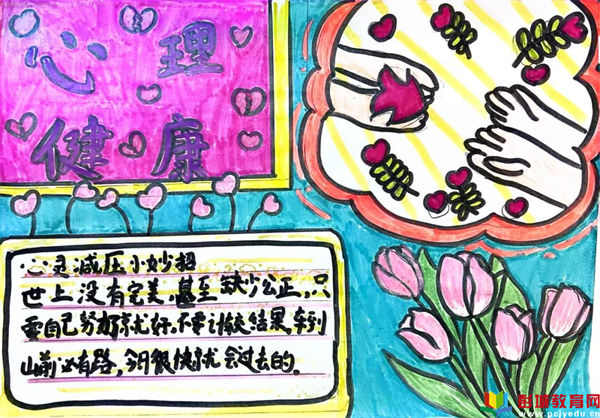 心理
健康
心灵减压小妙招
世上没有完美,甚至缺少公正,只
要自己努力就好,不要计较结果,车到
山前必有路,今日很快就会过去的。
教育网
www.pcjyedu.cn